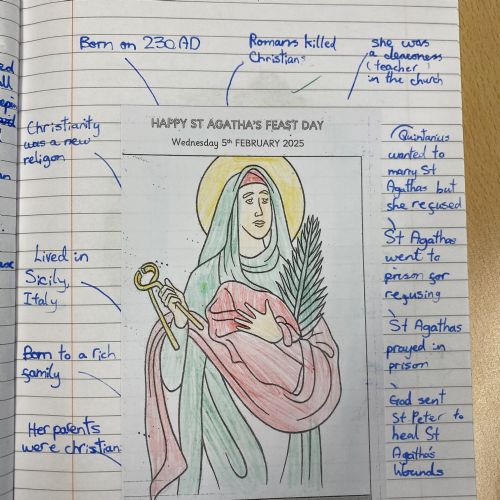 Born on 230 AD
Romans killed
Christians
she was
a deaconess
(teacher)
in the church
HAPPY ST AGATHA'S FEAST DAY
Wednesday 5th FEBRUARY 2025
Christianity
was a new
religon
Lived in
Sicily,
Italy
Born to a rich
family
Her parents
were christian
Quintarius
wanted to
many St
Agathas but
she refused
St Agathas
went to
prison for
refusing
St Agathas
prayed in
prison
God sent
St Peter to
heal St
Agatha's
Wounds